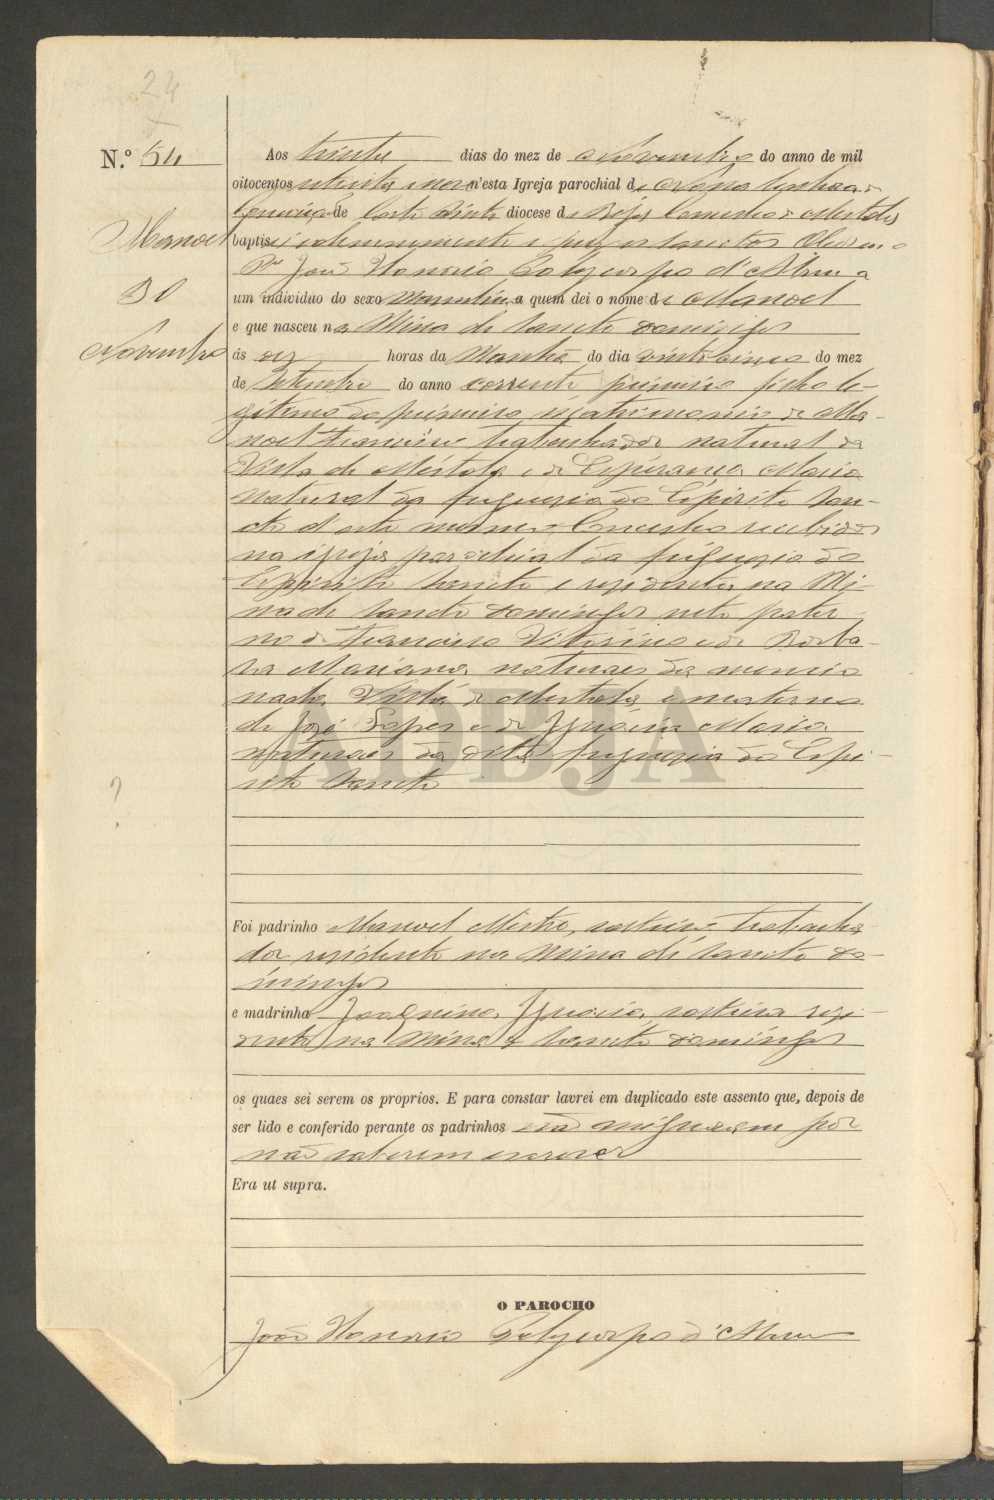 24
N.º 54
Manoel
30
Novembro
Aos trinta dias do mez de Novembro do anno de mil
oitocentos setenta e nove n'esta Igreja parochial de Nossa Senhora da
Conceição de Corte do Pinto diocese de Beja Concelho de Mertola
baptisei solemnemente e puz os Sanctos Oleos
João Honorio Polycarpo d'Abreu a
um individuo do sexo Masculino a quem dei o nome de Manoel
e que nasceu na Mina de Sancto Domingos
ás dez horas da Manhã do dia vinte cinco do mez
de Setembro do anno corrente primeiro filho le-
gitimo do primeiro matrimonio de Ma-
noel Francisco trabalhador natural da
Villa de Mértola e de Esperança Maria
natural da freguezia do Espirito San-
cto d'este mesmo Concelho recebidos
na igreja parochial da freguezia do
Espirito Sancto e residentes na Mi-
na de Sancto Domingos neto pater-
no de Francisco Vitorino e de Barba-
ra Mariana naturaes da mencio
nada Villa de Mertola e materno
de José Lopes e de Ignacia Maria
naturaes da dita freguezia do Espi-
rito Sancto
?
AD BJA
Foi padrinho Manoel Mestre, solteiro trabalha
dor residente na Mina de Sancto Do-
mingos
e madrinha Joaquina Ignacia, solteira resi-
dente na Mina de Sancto Domingos
os quaes sei serem os proprios. E para constar lavrei em duplicado este assento que, depois de
ser lido e conferido perante os padrinhos não assignaram por
não saberem escrever
Era ut supra.
O PAROCHO
João Honorio Polycarpo d'Abreu